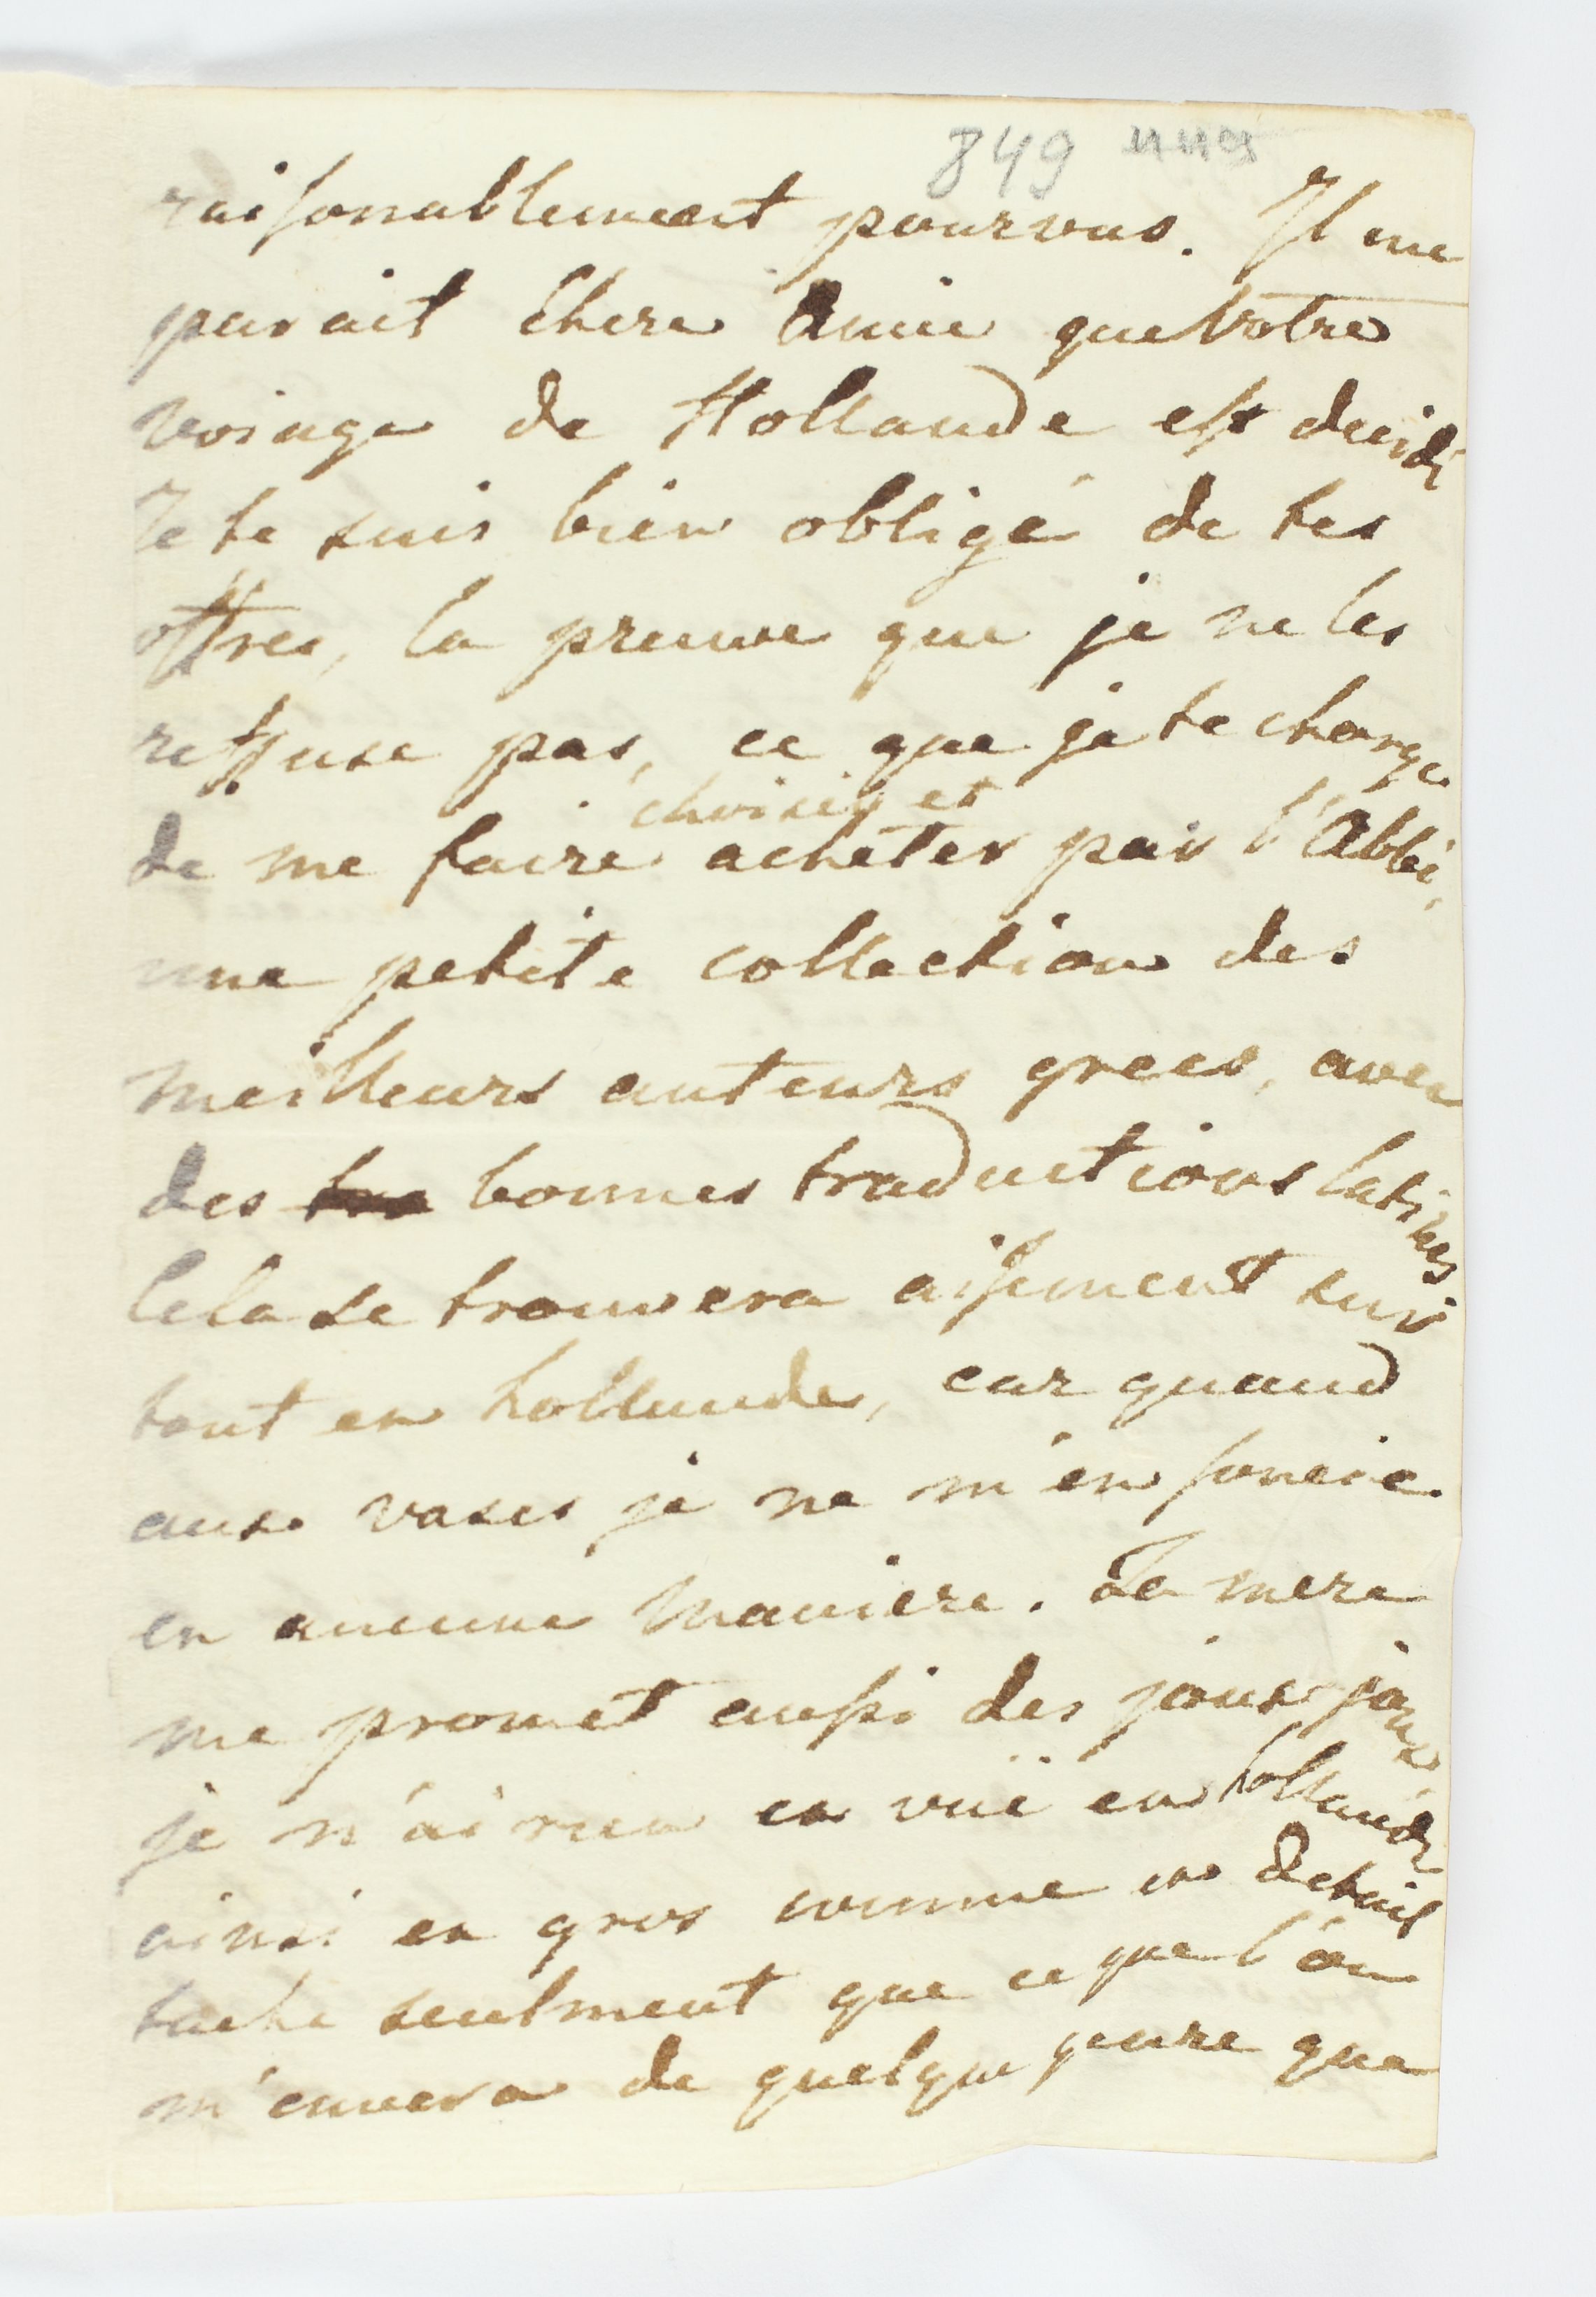 849
raisonablement pourvus. Il me
parait chere Amie que Votre
voiage de Hollande est decidé
Je te suis bien obligé de tes
offres, la preuve que je ne les
reffuse pas, ce que je te charge
choisir et
de me faire acheter par l'Abbé,
une petite collection des
meilleurs auteurs grecs, avec
des bonnes traductions latines
Cela se trouvera aisement sur
tout en hollande, car quand
aux vases je ne m'en soucie
en aucune maniere. Ta mere
me promet aussi des joux joux,
je n'ai rien en vuë en hollande
ainsi en gros comme en detail
tache seulment que ce que l'on
m'envera de quelque genre que